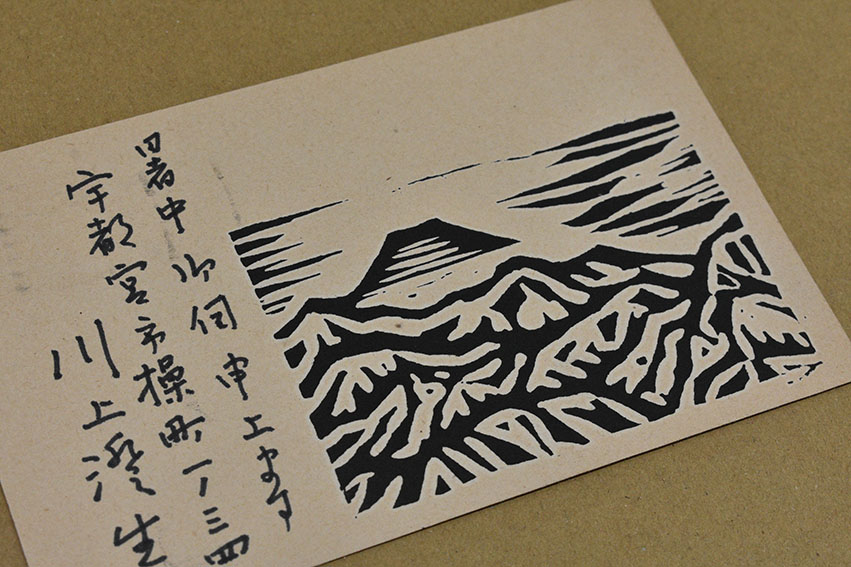 暑中御伺申上ます
宇都宮市操町一ノ三四
川上澄生